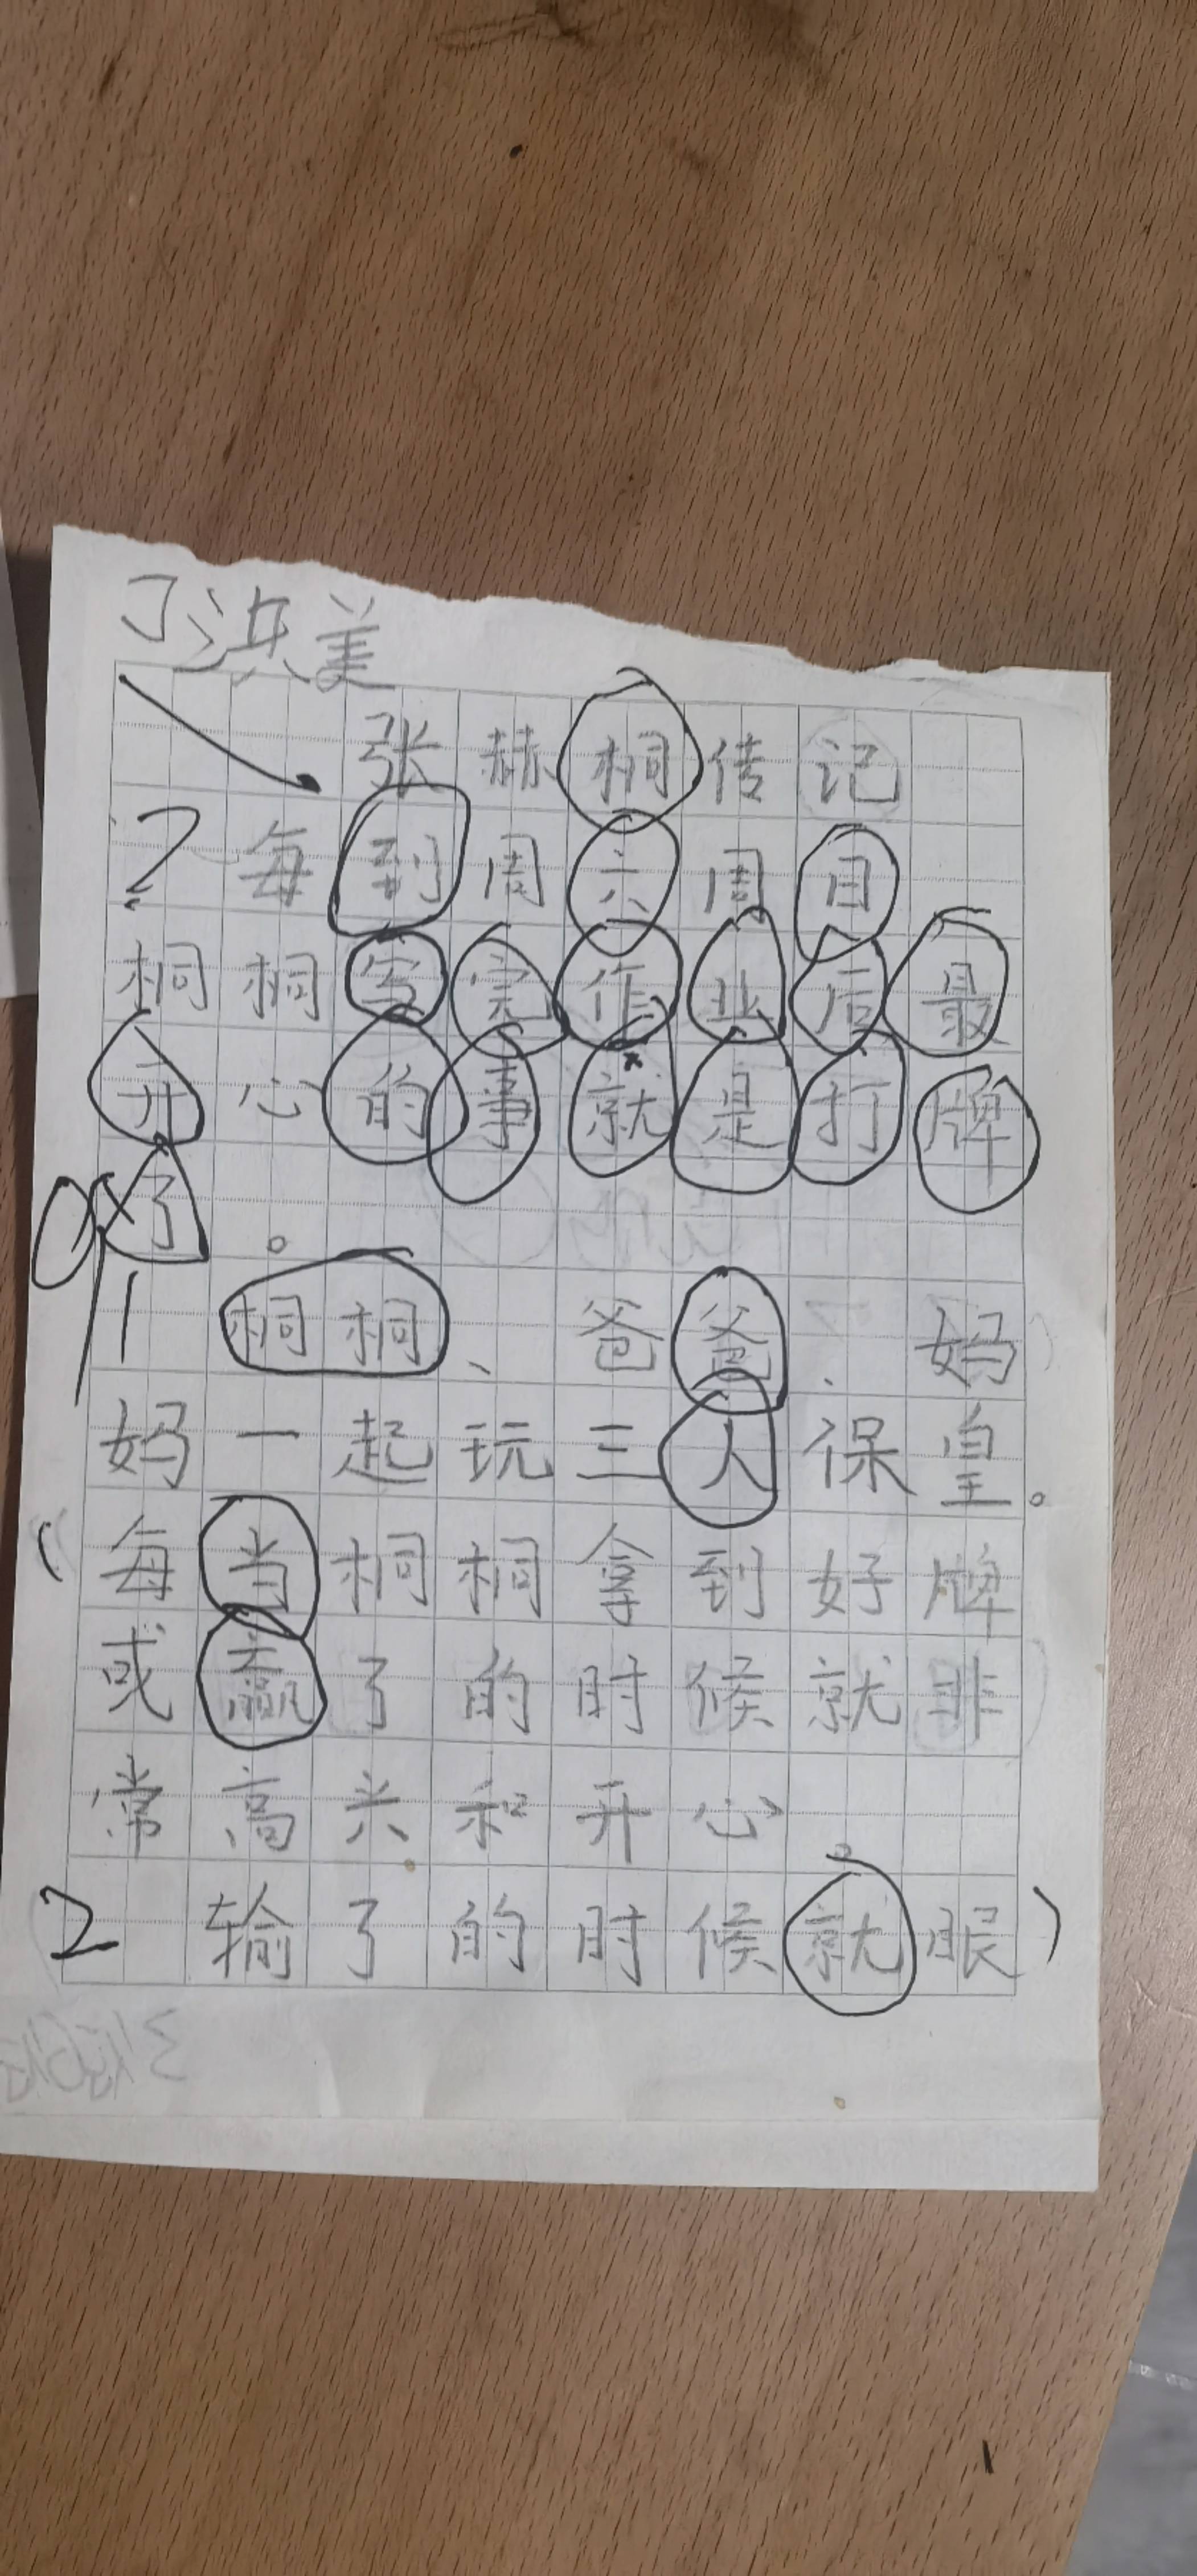 丁洪美
张赫桐传记
2 每到周六周日
桐桐写完作业后最
开心的事就是打牌
了。
桐桐、爸爸、妈
妈一起玩三人保皇。
每当桐桐拿到好牌
或赢了的时候就非
常高兴和开心。
2 输了的时候就眼